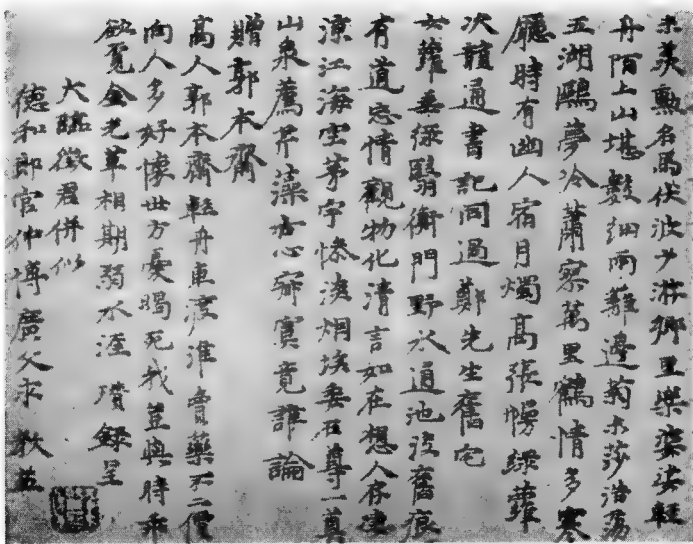 未羨勳名馬伏波少游鄉里樂婆娑輕
舟陌上山堪數細雨籬邊菊水莎浩蕩
五湖鷗夢冷蕭寥萬里鶴情多寒
廳時有幽人宿月燭高張幔綠蘿
次韻通書記同過鄭先生舊宅
女蘿垂綠翳衡門野水通池沒舊痕
有道忘情觀物化清言如在想人存淒
涼江海空茅宇慘淡烟埃委石尊一莫
山泉薦芹藻古心寂寞竟誰論
贈郭本齋
高人郭本齋輕舟東渡淮賣藥不二價
向人多好懷世方憂暍死我豈與時乖
欲覓金光草相期弱水涯 瓚錄呈
大臨徵君併似
德和郎官仲博廣文求教益